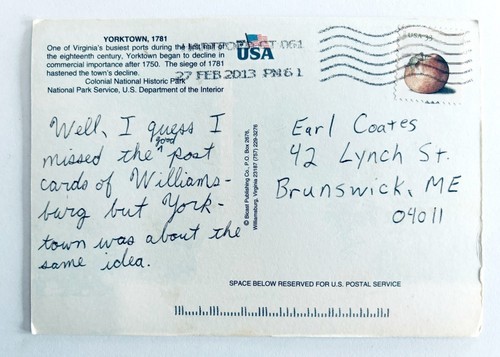 YORKTOWN, 1781
One of Virginia's busiest ports during the first half of
the eighteenth century, Yorktown began to decline in
commercial importance after 1750. The siege of 1781
hastened the town's decline.
Colonial National Historic Park
National Park Service, U.S. Department of the Interior
USA
27 FEB 2013 PM 6 L
USA
Well, I guess I
missed the good post
cards of Williams-
burg but York-
town was about the
same idea.
© Bicast Publishing Co., P.O. Box 2676,
Williamsburg, Virginia 23187 (757) 229-3276
Earl Coates
42 Lynch St.
Brunswick, ME
04011
SPACE BELOW RESERVED FOR U.S. POSTAL SERVICE